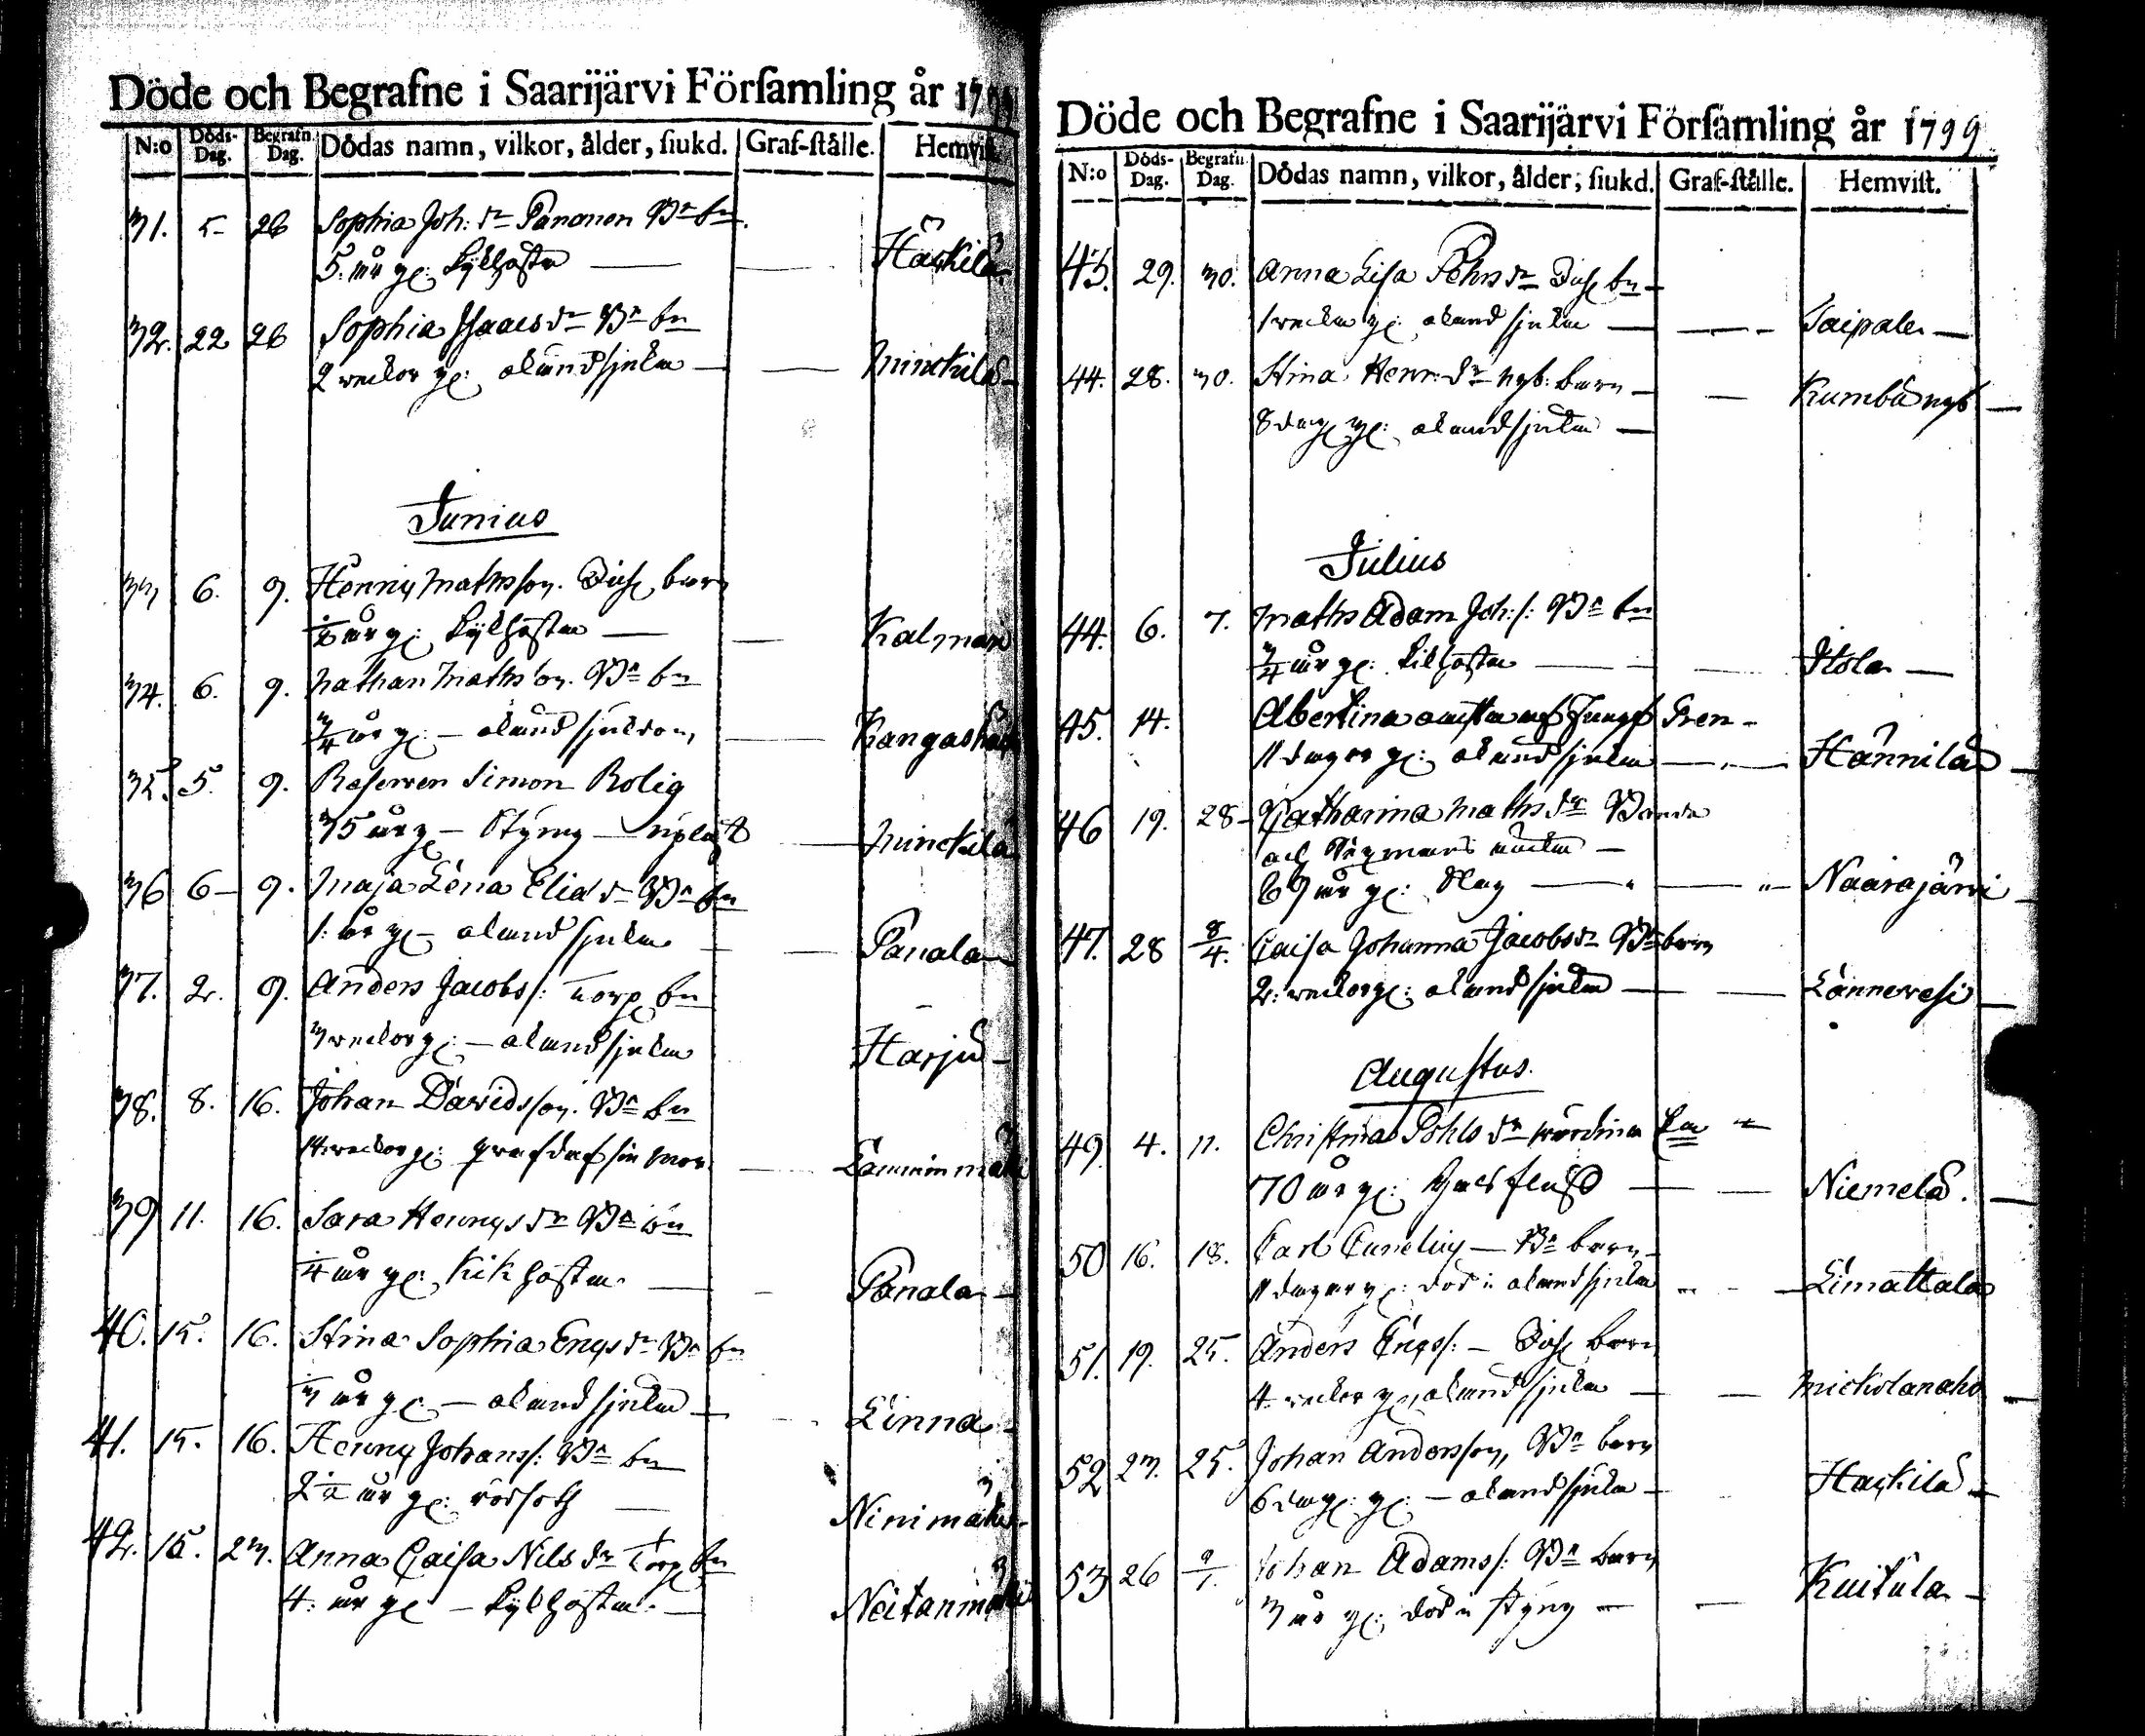 Döde och Begrafne i Saarijärvi Församling år 1799
N:o Döds-Dag. Begrafn. Dag. Dödas namn, vilkor, ålder, siukd. Graf-ställe. Hemvist.
31. 5 26 Sophia Joh: dr Pananen Bn bn
5. år gl: kikhosta — — Häckilä
32. 22 26 Sophia Isaacs dr Bn bn
2 veckor gl: okänd sjukd — — Minckilä
Junius
33 6. 9. Henric Mathsson. Inh barn
½ år gl: kikhosta — — Kalmari
34. 6. 9. Nathan Mathsson. Bn bn
¾ år gl: — okänd sjukdom — Kangas
35. 5. 9. Reserven Simon Rolig
35 år gl — Styng — — Minckilä
36 6 — 9. Maja Lena Elias dr Bn bn
1. år gl — okänd sjukd — — Panala
37. 2. 9. Anders Jacobs/: Torp bn
3 veckor gl: — okänd sjukd Harju —
38. 8. 16. Johan Davidsson. Bn bn
14 veckor gl: mor — Lamminmäki
39 11. 16. Sara Henrics dr Bn bn
¼ år gl: kikhosta — — Panala —
40. 15. 16. Stina Sophia Erics dr Bn bn
3 år gl — okänd sjukd — Linna
41. 15. 16. Henric Johans/: Bn bn
2½ år gl: rödsoth — Ninimäki
42. 15. 23. Anna Caisa Nils dr Torp bn
4. år gl — kikhosta — Neitanmäki
Döde och Begrafne i Saarijärvi Församling år 1799
N:o Döds-Dag. Begrafn. Dag. Dödas namn, vilkor, ålder, siukd. Graf-ställe. Hemvist.
43. 29. 30. Anna Lisa Pehrs dr Inh bn —
1 vecka gl: okänd sjukd — — Taipale —
44. 28. 30. Stina Henr: dr nyb: barn —
8 dag gl: okänd sjukd — — Kumbu nyb —
Julius
44. 6. 7. Maths Adam Joh:/: Bn bn
¾ år gl: kikhosta — — Itola —
45. 14. Albertina
11 dagar gl: okänd sjukd — — Hännilä —
46 19. 28 — Catharina Maths dr Bonde
och enka —
69 år gl: Slag — — Naarajärvi —
47. 28 8/4. Caisa Johanna Jacobs dr Bn barn
2: veckor gl: okänd sjukd — — Lännevesi —
Augustus.
49. 4. 11. Christina Pohls dr
70 år gl: — — Niemelä. —
50 16. 18. Carl Cunelius — Bn barn —
11 dagar gl: död i okänd sjukd — Limattala
51. 19. 25. Anders Erics/: — Inh barn
4 veckor gl, okänd sjukd — — Mickolanaho —
52 23. 25. Johan Andersson, Bn barn
6 dag: gl: — okänd sjukd — Häckilä —
53 26 9/1. Johan Adams/: Bn barn
3 år gl: död i styng — — Kuitula —